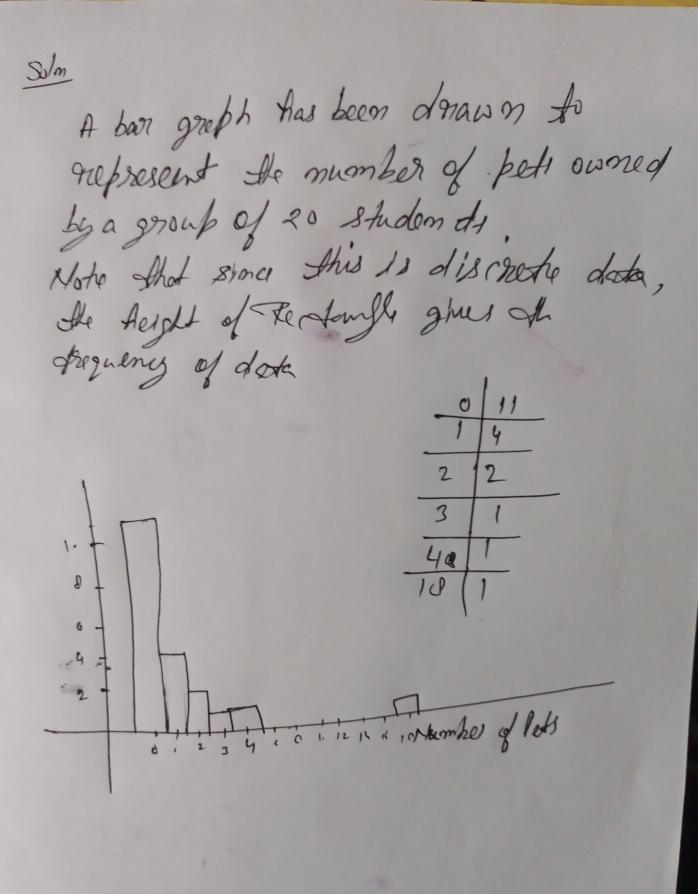 Soln
A bar graph has been drawn to
represent the number of pets owned
by a group of 20 students.
Note that since this is discrete data,
the height of Rectangle gives the
frequency of data
0 11
1 4
2 2
3 1
4 1
18 1
1.
8
6
4
2
0 1 2 3 4 12 14 Number of Pets